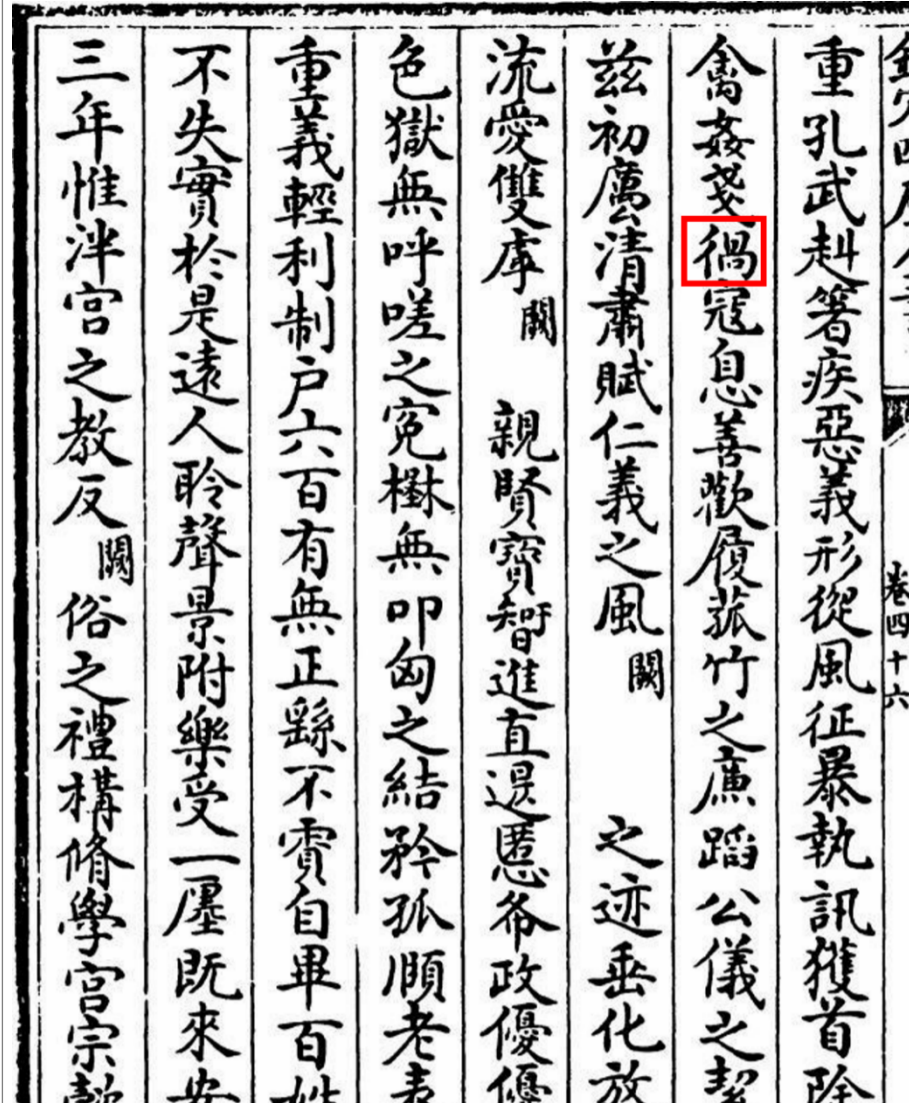 卷四十六
重孔武赳箸疾惡義形從風征暴執訊獲首除
禽姦戔猾寇息善歡履菰竹之廉蹈公儀之絜
兹初厲清肅賦仁義之風闕之迹垂化放
流愛雙虖闕親賢寶智進直退慝布政優優
色獄無呼嗟之冤櫒無叩匈之結矜孤頤老表
重義輕利制户六百有無正繇不賣自畢百姓
不失實於是遠人聆聲景附樂受一廛既來安
三年惟泮宫之教反闕俗之禮構脩學宫宗